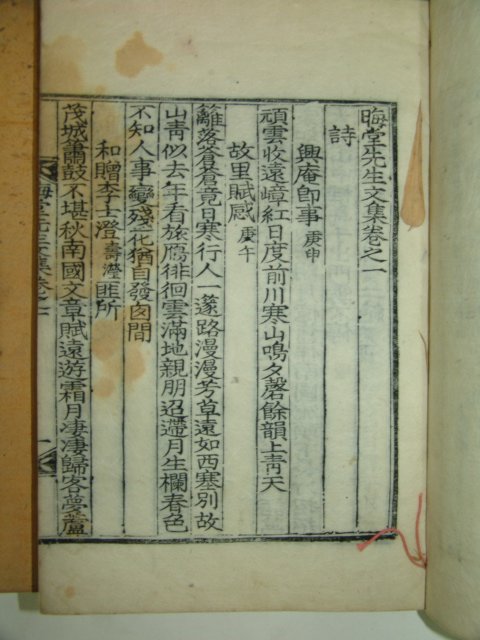 晦堂先生文集卷之一
詩
興庵卽事 庚申
頑雲收遠嶂紅日度前川寒山鳴夕磬餘韻上靑天
故里賦感 庚午
籬落蒼蒼竟日寒行人一邃路漫漫芳草遠如西塞別故
山靑似去年看旅鴈徘徊雲滿地親朋迢遰月生欄春色
不知人事變殘花猶自發囱間
和贈李士澄 壽瀅 匪所
茂城簫鼓不堪秋南國文章賦遠遊霜月凄凄歸客夢蘆
晦堂先生文集卷之一